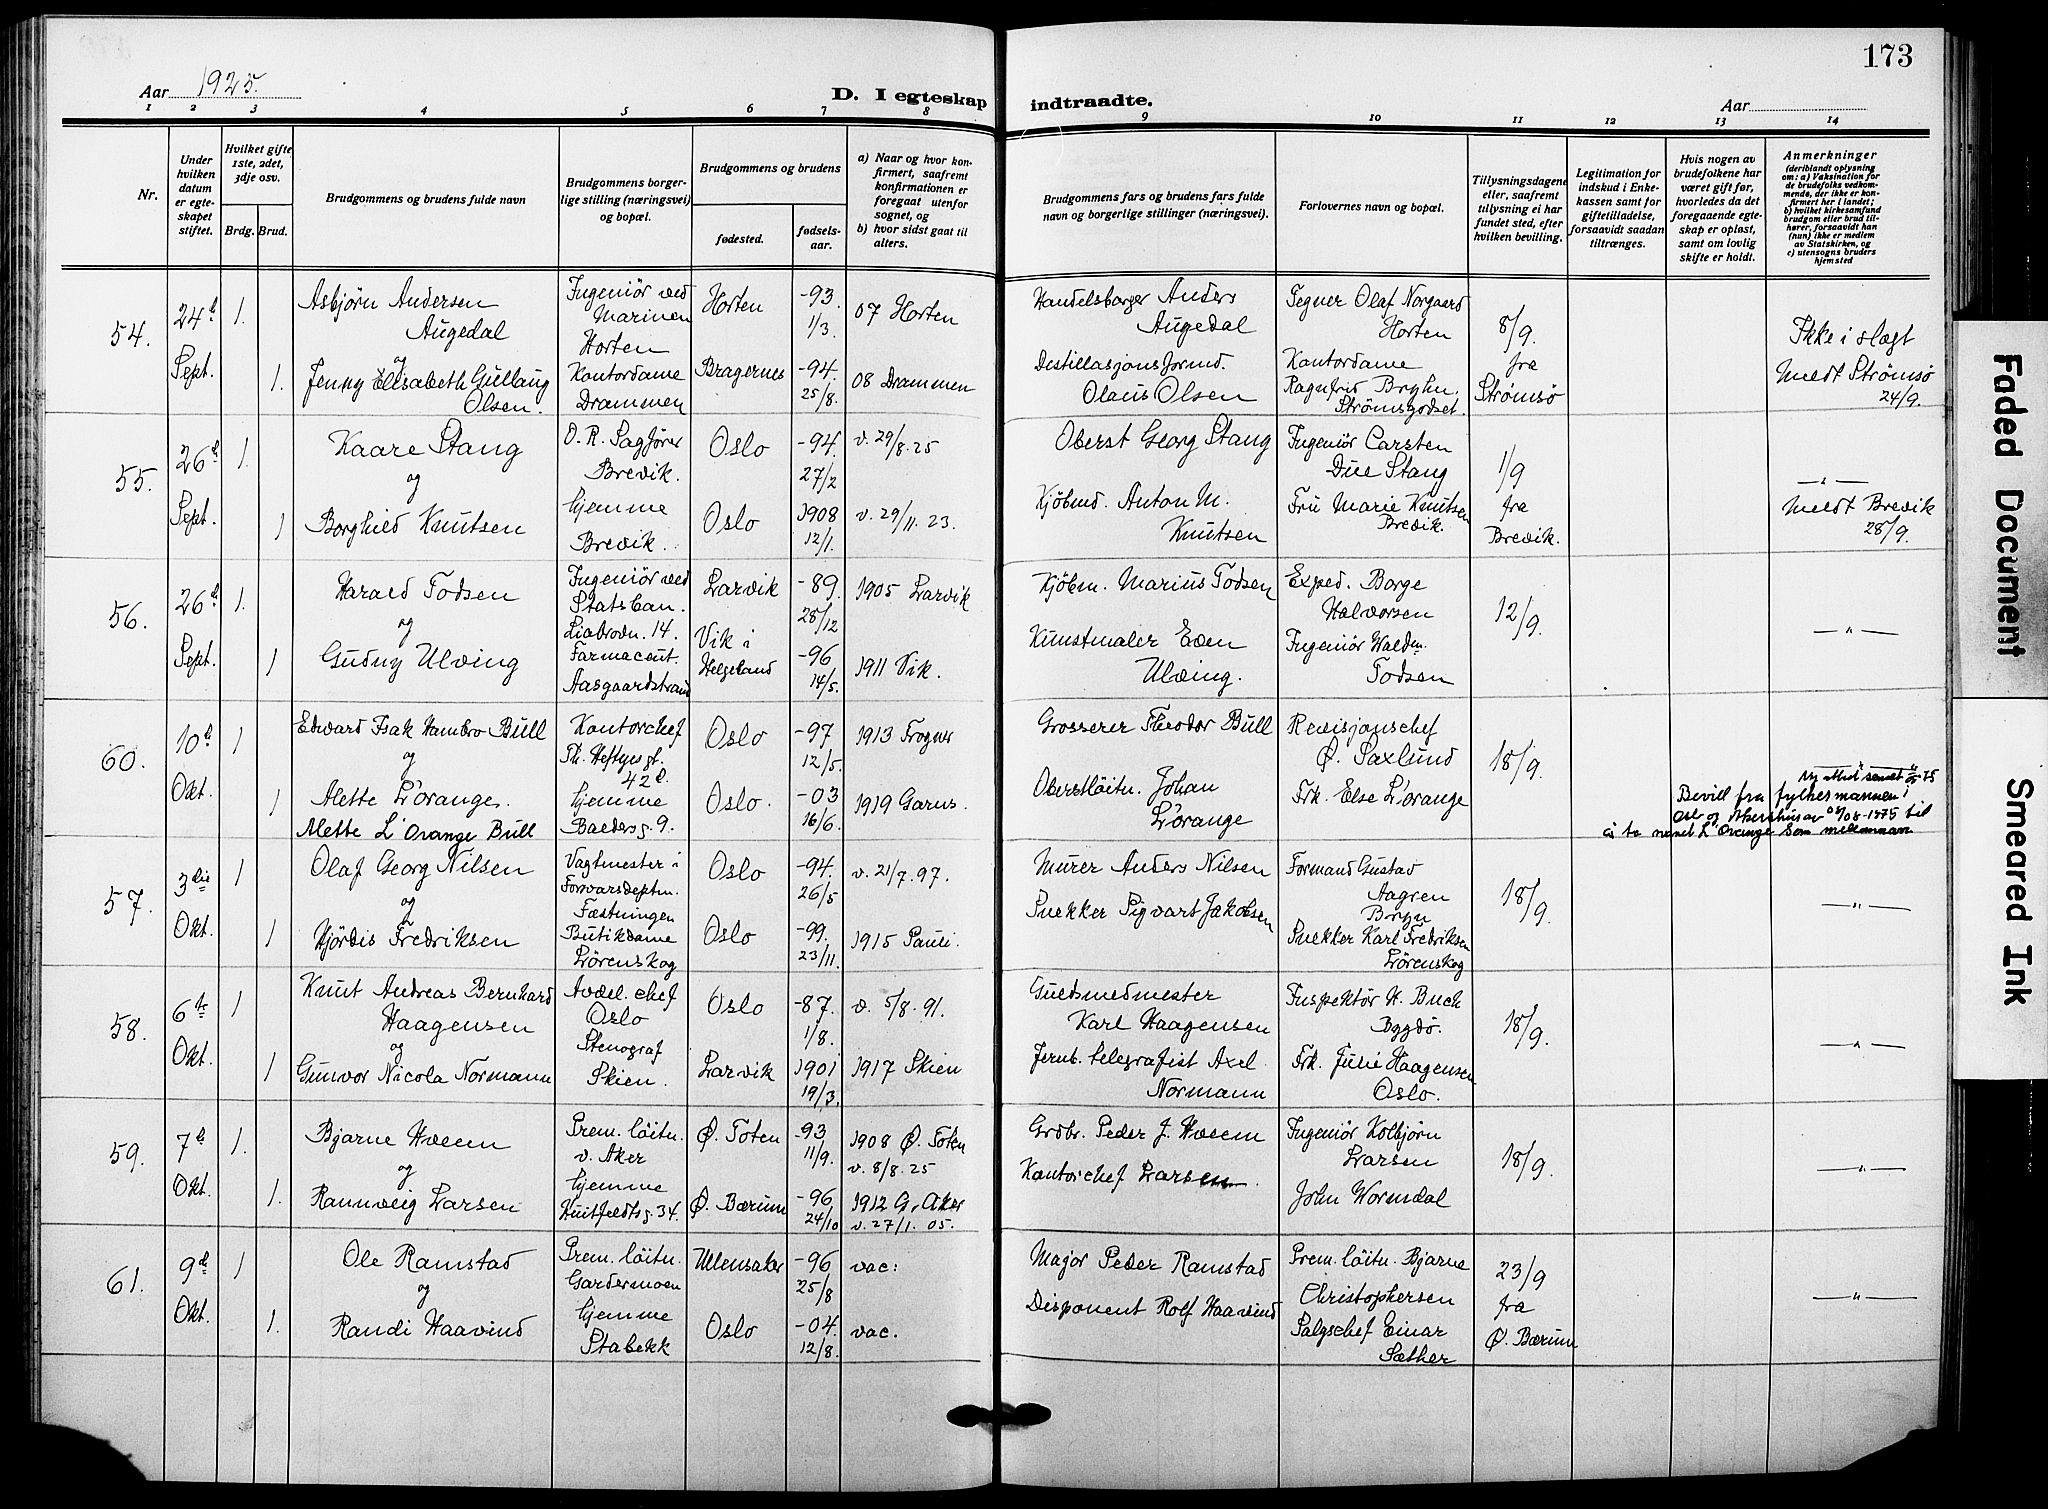 173
Aar 1925.
D. I egteskap indtraadte.
Aar
1 2 3 4 5 6 7 8 9 10 11 12 13 14
Nr.
Under hvilken datum er egteskapet stiftet.
Hvilket gifte 1ste, 2det, 3dje osv.
Brdg. Brud.
Brudgommens og brudens fulde navn
Brudgommens borgerlige stilling (næringsvei) og bopæl.
Brudgommens og brudens
fødested.
fødselsaar.
a) Naar og hvor konfirmert, saafremt konfirmationen er foregaat utenfor sognet, og
b) hvor sidst gaat til alters.
Brudgommens fars og brudens fars fulde navn og borgerlige stillinger (næringsvei).
Forlovernes navn og bopæl.
Tillysningsdagene eller, saafremt tillysning ei har fundet sted, efter hvilken bevilling.
Legitimation for indskud i Enkekassen samt for giftetilladelse, forsaavidt saadan tiltrænges.
Hvis nogen av brudefolkene har været gift før, hvorledes da det foregaaende egteskap er opløst, samt om lovlig skifte er holdt.
Anmerkninger (deriblandt oplysning om: a) Vaksination for de brudefolks vedkommende, der ikke er konfirmert her i landet; b) hvilket kirkesamfund brudgom eller brud tilhører, forsaavidt han (hun) ikke er medlem av Statskirken, og c) utensogns bruders hjemsted
54. 24de Sept. 1.
Asbjørn Andersen Augedal
Ingeniør ved Marinen Horten
Horten
-93. 1/3.
07 Horten
Handelsborger Anders Augedal
Tegner Olaf Norgaard Horten
8/9. fra Strømsø
Ikke i slægt
Meldt Strømsø 24/9.
og
1. Jenny Elisabeth Gullaug Olsen.
Kontordame Drammen
Bragernes
-94. 25/8.
08 Drammen
Destillasjonsformd. Olaus Olsen
Kontordame Ragnfrid Bryhn. Strømsgodset.
55. 26de Sept. 1.
Kaare Stang
O. R. Sagfører Brevik.
Oslo
-94. 27/2
v. 29/8. 25
Oberst Georg Stang
Ingeniør Carsten Due Stang
1/9 fra Brevik.
— " —
Meldt Brevik 28/9.
og
1 Borghild Knutsen
hjemme Brevik.
Oslo
1908 12/1.
v. 29/11. 23.
Kjøbmd. Anton M. Knutsen
Fru Marie Knutsen Brevik.
56. 26de Sept. 1.
Harald Todsen
Ingeniør ved Statsban. Liabrovn. 14.
Larvik
-89. 28/12
1905 Larvik
Kjøbm. Marius Todsen
Exped. Borge Halvorsen
12/9.
— " —
og
1 Gudny Ulving
Farmaceut. Aasgaardstrand
Vik i Helgeland
-96. 14/5.
1911 Vik.
Kunstmaler Even Ulving.
Ingeniør Waldm. Todsen
60. 10de Okt. 1
Edvard Isak Hambro Bull
Kontorchef Th. Heftyes gt. 42
Oslo
-97 12/5.
1913 Frogner
Grosserer Theodor Bull
Revisjonschef Ø. Saxlund
18/9.
og
1 Alette L'orange.
Alette L'Orange Bull
hjemme Baldersg. 9.
Oslo.
-03 16/6.
1919 Garns.
Oberstløitn. Johan L'orange
Frk. Else L'orange
Bevill fra fylkesmannen i
Oslo og Akershus av 08/08-1975 til
å ta navnet L'Orange som mellomnavn
57. 3die Okt. 1
Olaf Georg Nilsen
Vagtmester i Forsvarsdeptm. Fæstningen
Oslo
-94. 26/5
v. 21/7. 97.
Murer Anders Nilsen
Formand Gustav Aagren Bryn
18/9.
— " —
og
1 Hjørdis Fredriksen
Butikdame Lørenskog
Oslo
-99. 23/11.
1915 Pauli.
Snekker Sigvart Jakobsen
Snekker Karl Fredriksen Lørenskog
58. 6te Okt. 1
Knut Andreas Bernhard Haagensen
Avdel. chef Oslo
Oslo
-87. 1/8.
v. 5/8. 91.
Guldsmedmester Karl Haagensen
Inspektør H. Buch Bygdø.
18/9.
— " —
og
1 Gunvor Nicola Normann
Stenograf Skien.
Larvik
1901 19/3.
1917 Skien
Jernb. telegrafist Axel Normann
Frk. Julie Haagensen Oslo.
59. 7de Okt. 1.
Bjarne Hveem
Prem. løitn. v. Aker
Ø. Toten
-93 11/9.
1908 Ø. Toten
v. 8/8. 25
Grdbr. Peder J. Hveem
Ingeniør Kolbjørn Larsen
18/9.
— " —
og
1. Rannveig Larsen
hjemme Huitfeldtsg. 34.
Ø. Bærum
-96 24/10
1912 G. Aker
v. 27/1. 05.
Kontorchef Larsen.
John Wormdal
61. 9de Okt. 1
Ole Ramstad
Prem. løitn. Gardermoen
Ullensaker
-96 25/8
vac:
Major Peder Ramstad
Prem. løitn. Bjarne Christophersen
23/9 fra Ø. Bærum
— " —
og
1. Randi Haavind
hjemme Stabekk
Oslo
-04. 12/8.
vac.
Disponent Rolf Haavind
Salgschef Einar Sæther
Faded Document
Smeared Ink